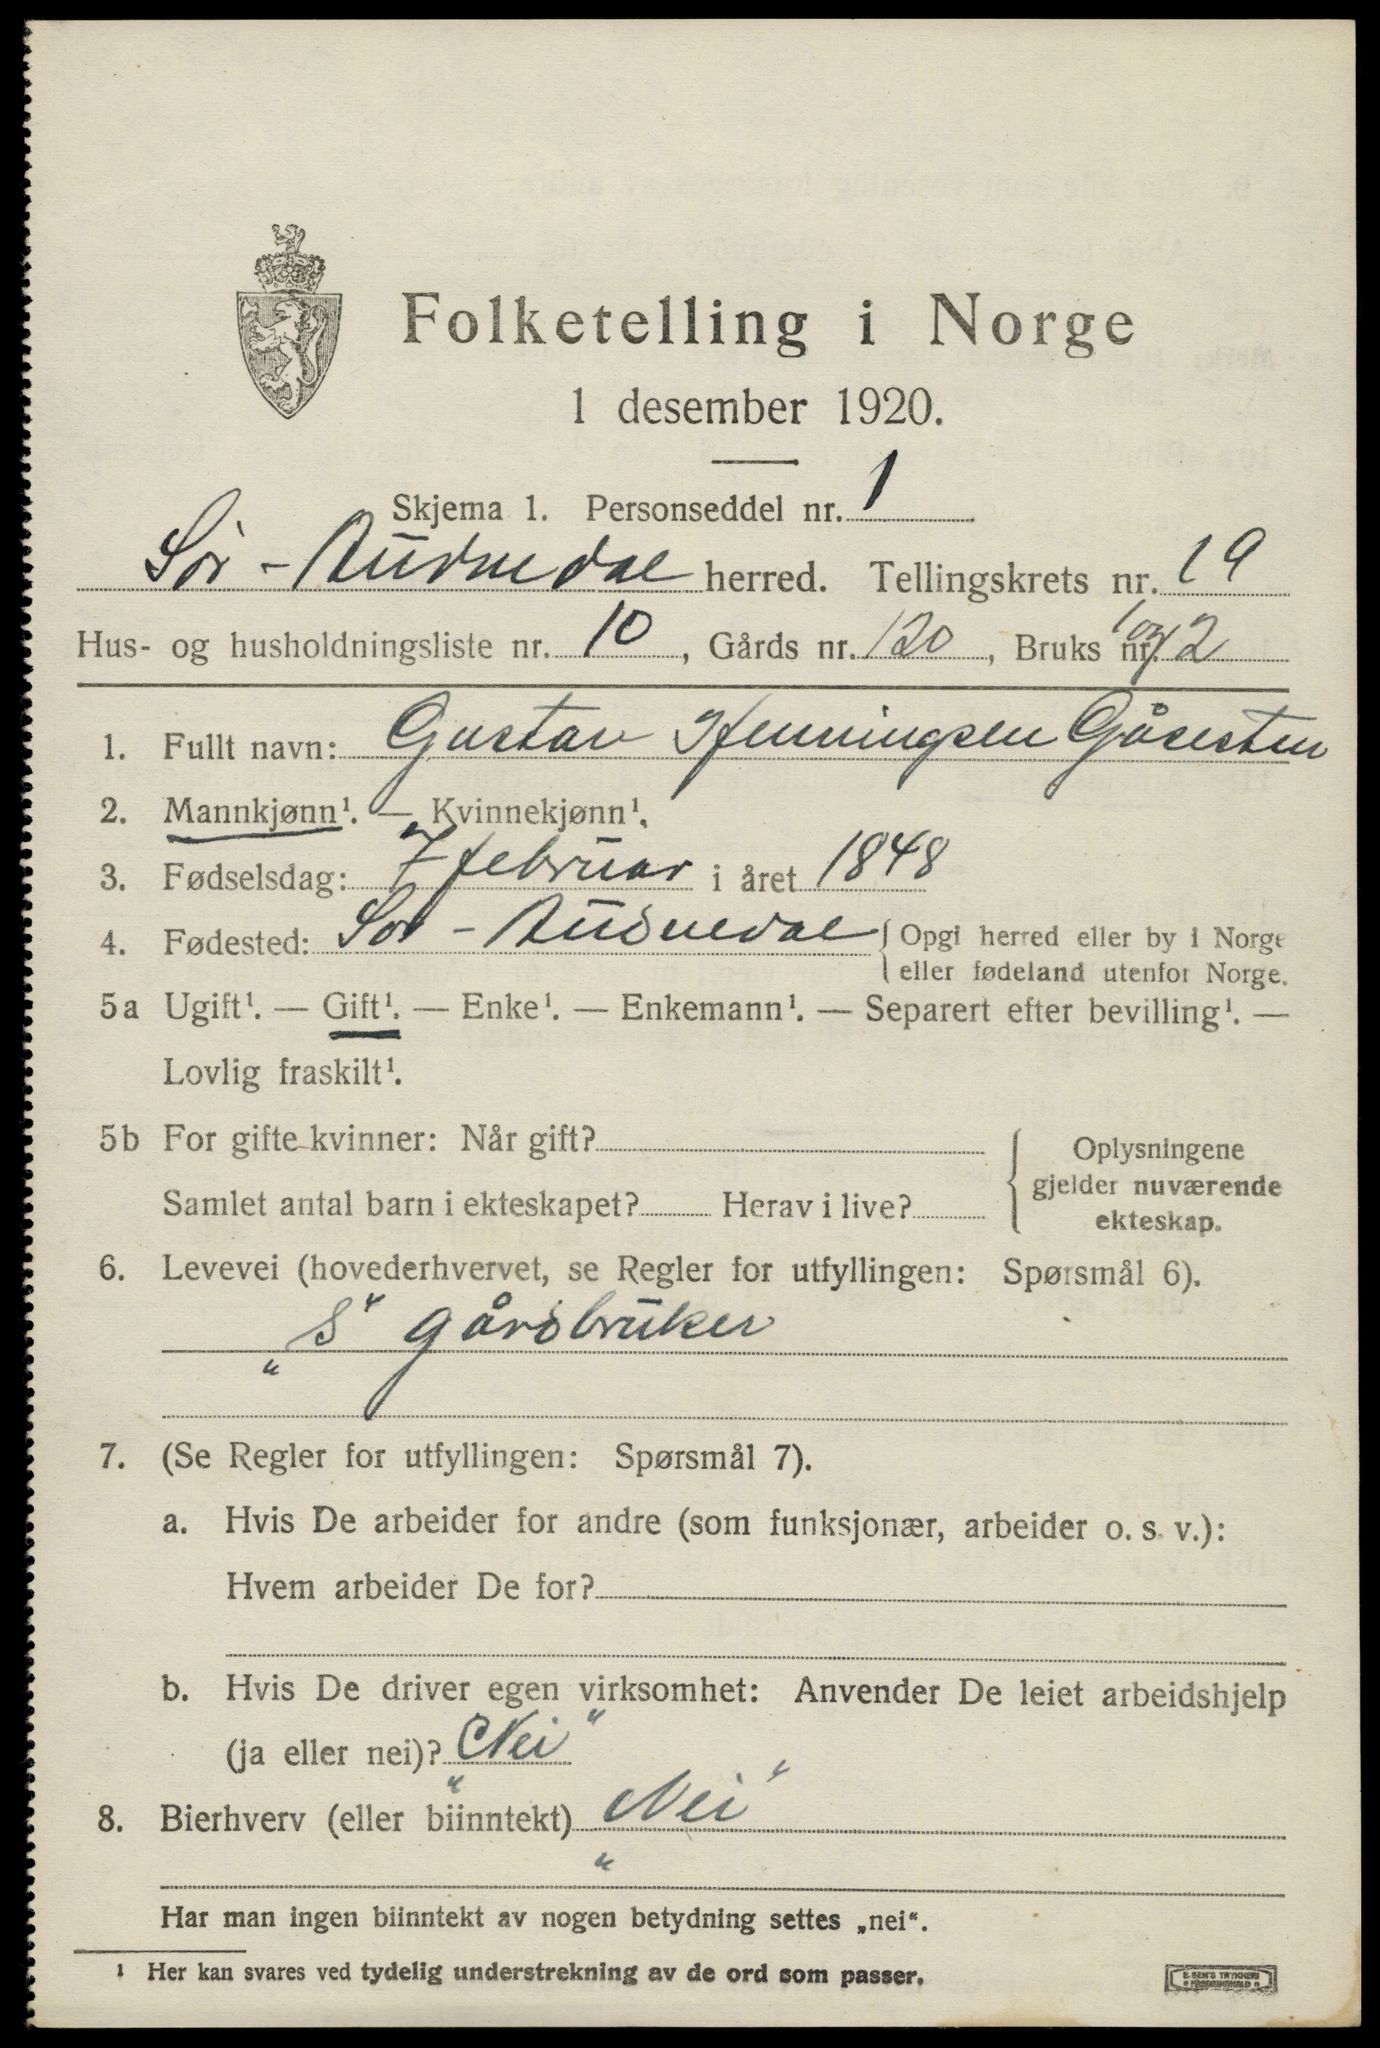 Folketelling i Norge
1 desember 1920.
Skjema 1. Personseddel nr. 1
Sør-Audnedal herred. Tellingskrets nr. 19
Hus- og husholdningsliste nr. 10, Gårds nr. 120, Bruks nr. 1 og 2
1. Fullt navn: Gustav Henningsen Gåsesten
2. Mannkjønn¹. — Kvinnekjønn¹.
3. Fødselsdag: 7 februar i året 1848
4. Fødested: Sør-Audnedal { Opgi herred eller by i Norge
eller fødeland utenfor Norge.
5a Ugift¹. — Gift¹. — Enke¹. — Enkemann¹. — Separert efter bevilling¹. —
Lovlig fraskilt¹.
5b For gifte kvinner: Når gift?
Samlet antal barn i ekteskapet? Herav i live?
Oplysningene
gjelder nuværende
ekteskap.
6. Levevei (hovederhvervet, se Regler for utfyllingen: Spørsmål 6).
„S“ gårdbruker
7. (Se Regler for utfyllingen: Spørsmål 7).
a. Hvis De arbeider for andre (som funksjonær, arbeider o. s. v.):
Hvem arbeider De for?
b. Hvis De driver egen virksomhet: Anvender De leiet arbeidshjelp
(ja eller nei)? „Nei“
8. Bierhverv (eller biinntekt) „Nei“
Har man ingen biinntekt av nogen betydning settes „nei“.
¹ Her kan svares ved tydelig understrekning av de ord som passer.